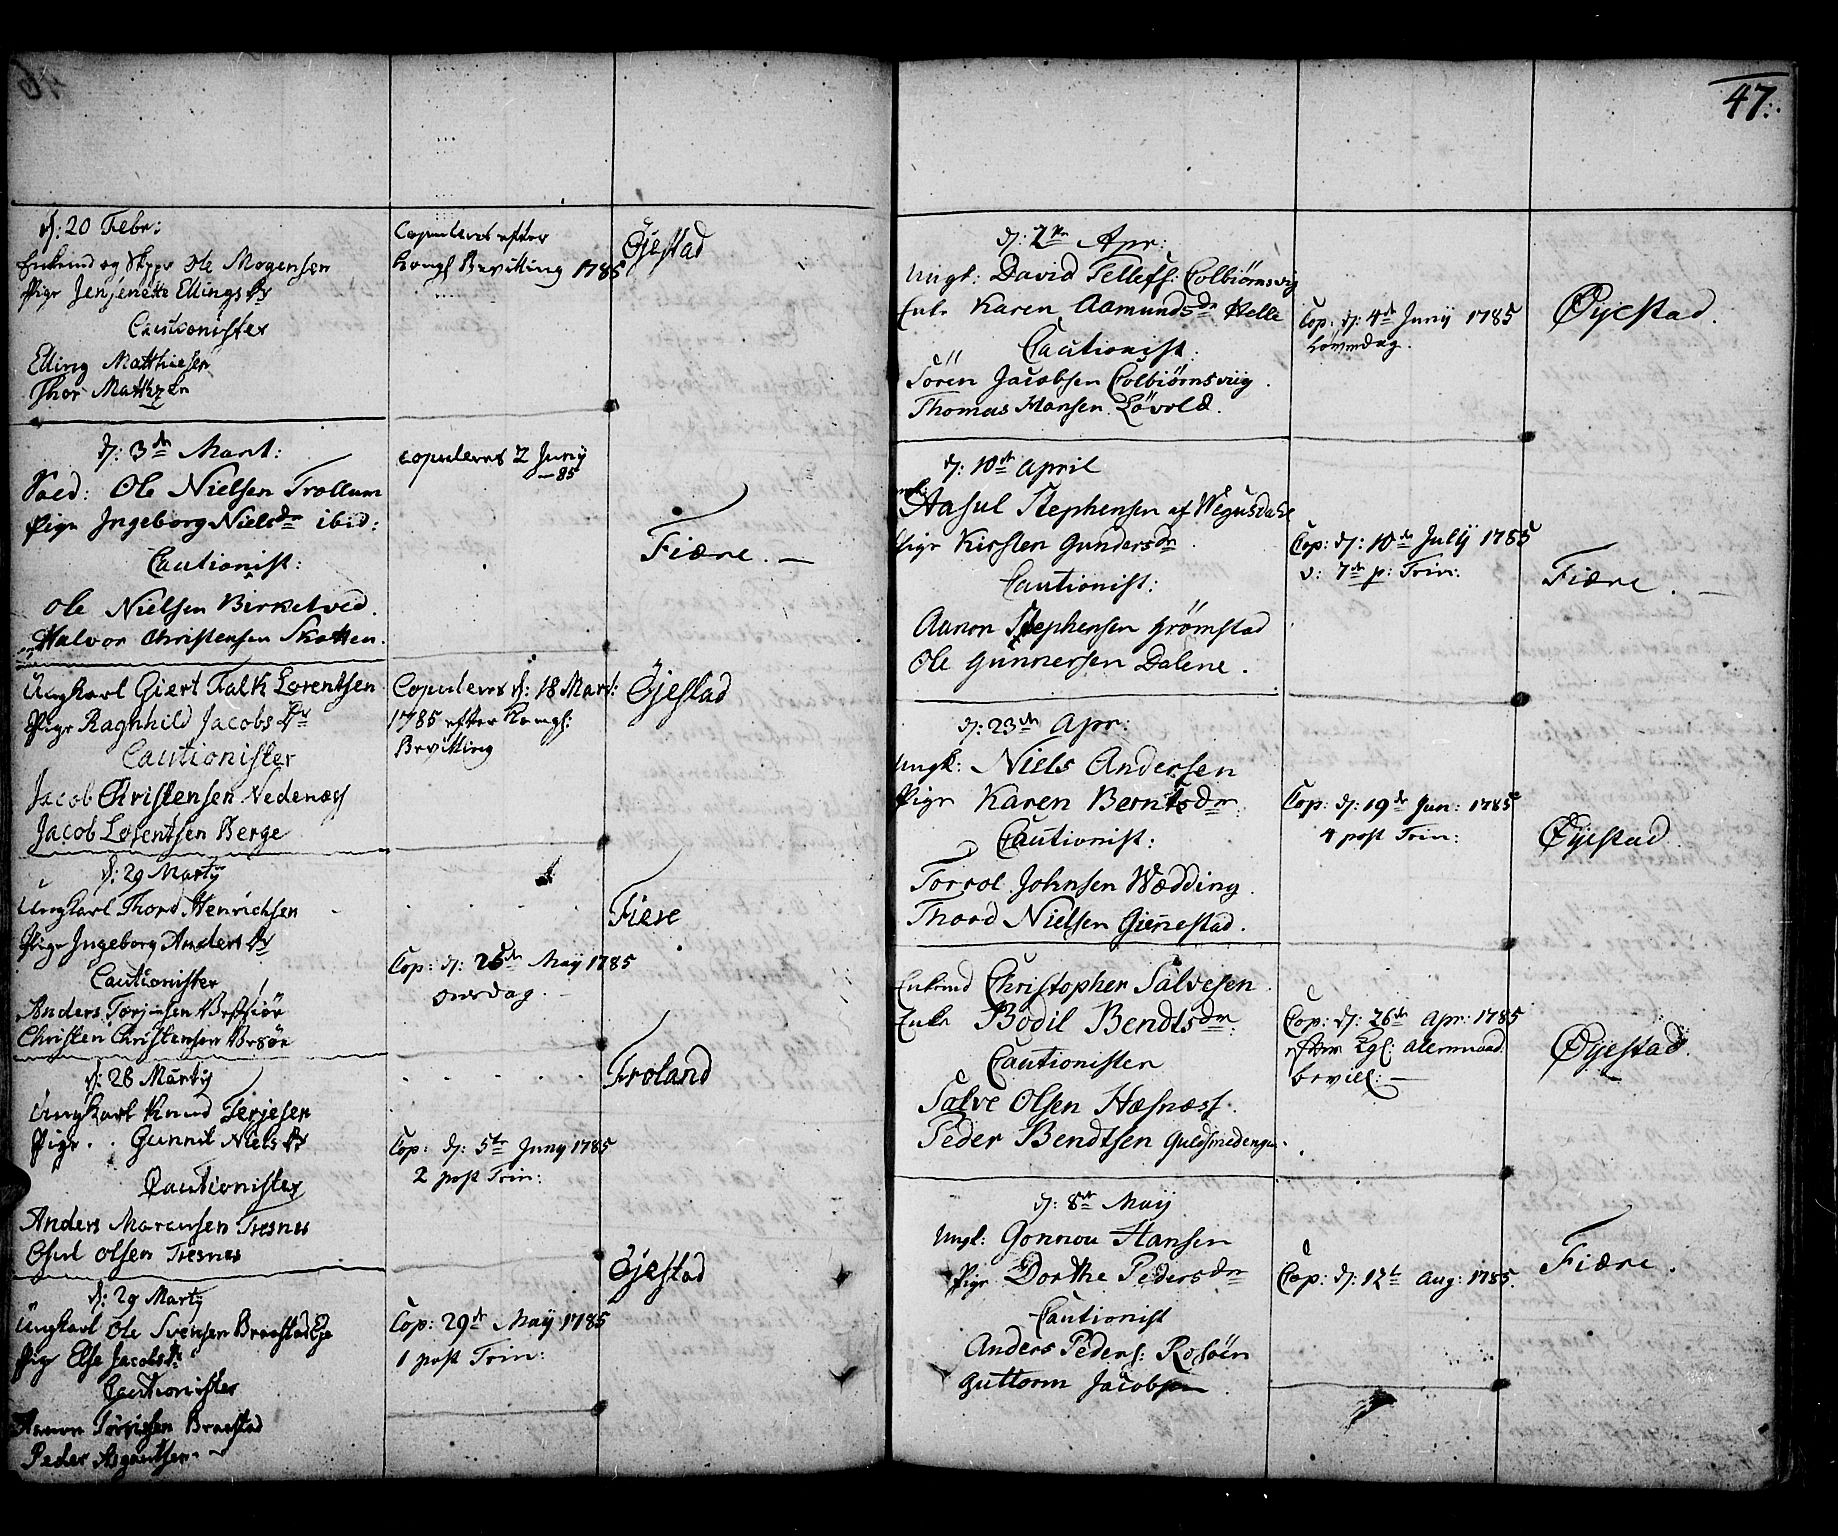 d: 20 Febr:
Enkemd og Skippr Ole Mogensen
Pige Jenjenette Ellings Dr
Cautionister
Elling Matthiesen
Thor Matth
Copuleret efter
Kongl Bevilling 1785
Øjestad
d: 3de Mart:
Sold: Ole Nielsen Trollum
Pige Ingeborg Nielsdr ibid:
Cautionist:
Ole Nielsen Birketved.
Halvor Christensen Skotten.
copuleret 2 Junij
-85
Fiære. -
Ungkarl Giert Falk Lorentsen
Pige Ragnhild Jacobs Dr
Cautionister
Jacob Christensen Nedenæss
Jacob Lorentsen Berge
Copuleret d: 18 Mart:
1785 efter Kongl:
Bevilling
Øjestad
d: 29 Martij
Ungkarl Thord Henrichsen
Pige Ingeborg Anders Dr
Cautionister
Anders Torjusen
Christen Christensen
Cop: d: 25de Maij 1785
onsdag.
Fiere
d: 28 Martij
Ungkarl Knud Terjesen
Pige . . Gunnil Niels Dr
Cautionister
Anders Marcusen Tresnes
Osul Olsen Tresnes
Cop: d: 5te Junij 1785
2 post Trin:
Froland
d: 29 Martij
Ungkarl Ole Svensen Braastad Eje
Pige Else Jacobs Dr
Cautionister
Aamon Torgiesen Braastad
Peder Asgautsen
Cop: 29de Maij 1785
1 post Trin:
Øjestad
47.
d: 2den Apr:
Ungk: David Tellefs: Colbiørnsvig
Enke Karen Aamundsdr Helle
Cautionist:
Sören Jacobsen Colbiørnsviig
Thomas Hansen Lövold.
Cop: d: 4de Junij 1785
Løverdag.
Øyestad.
d: 10de April
Aasul Stephensen af Wegusdahl
Pige Kirsten Gundersdr
Cautionist:
Aanon Stephensen Grömstad
Ole Gunnersen Dalene.
Cop: d: 10de Julij 1785
d: 7de p: Trin:
Fiære. -
d: 23de Apr:
Ungk: Niels Andersen
Pige Karen Berntsdr
Cautionist:
Torrol Johnsen Wædding.
Thord Nielsen Giennestad.
Cop: d: 19de Jun: 1785
4 post Trin:
Øyestad
Enkemd Christopher Salvesen.
Enke Bodil Bendtsdr:
Cautionister
Salve Olsen Hæsnæss.
Peder Bendtsen Guldsmedengen.
Cop: d: 26de Apr: 1785
efter Kgl: allernaad.
bevill: -
Øyestad.
d: 8de Maij
Ungk: Gonnou Hansen
Pige Dorthe Pedersdr
Cautionist
Anders Peders: Rosöen
Guttorm Jacobsen
Cop: d: 12te Aug: 1785.
Fiære.